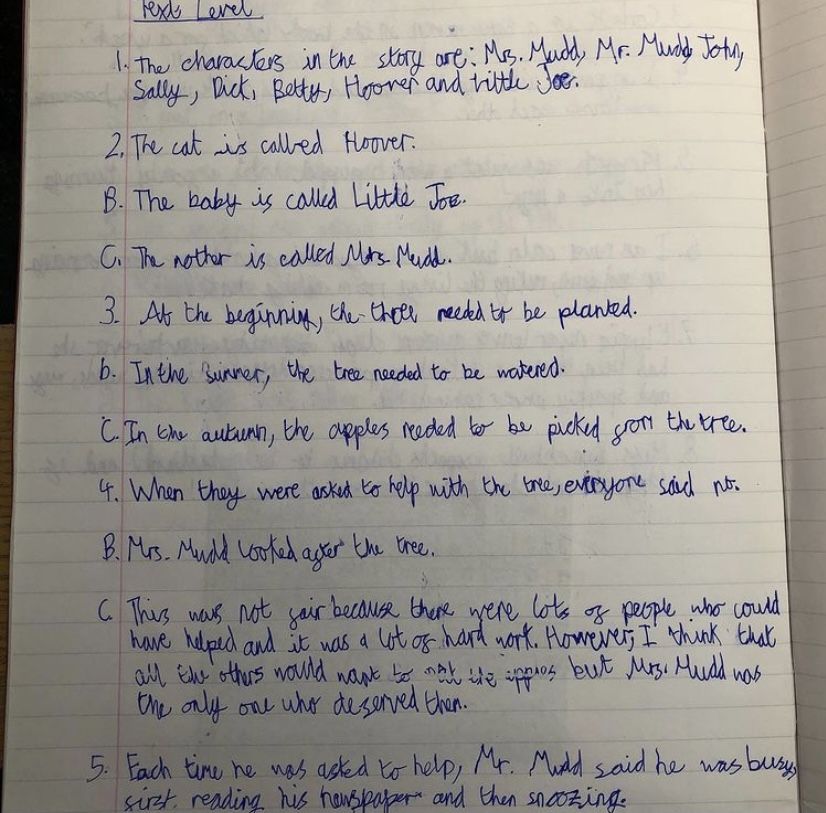 Text Level
1. The characters in the story are: Mrs. Mudd, Mr. Mudd, John,
Sally, Dick, Betty, Hoover and little Joe.
2. The cat is called Hoover.
B. The baby is called Little Joe.
C. The mother is called Mrs. Mudd.
3. At the beginning, the tree needed to be planted.
b. In the summer, the tree needed to be watered.
C. In the autumn, the apples needed to be picked from the tree.
4. When they were asked to help with the tree, everyone said no.
B. Mrs. Mudd looked after the tree.
C This was not fair because there were lots of people who could
have helped and it was a lot of hard work. However, I think that
all the others would want to eat the apples but Mrs. Mudd was
the only one who deserved them.
5. Each time he was asked to help, Mr. Mudd said he was busy,
first reading his newspaper and then snoozing.